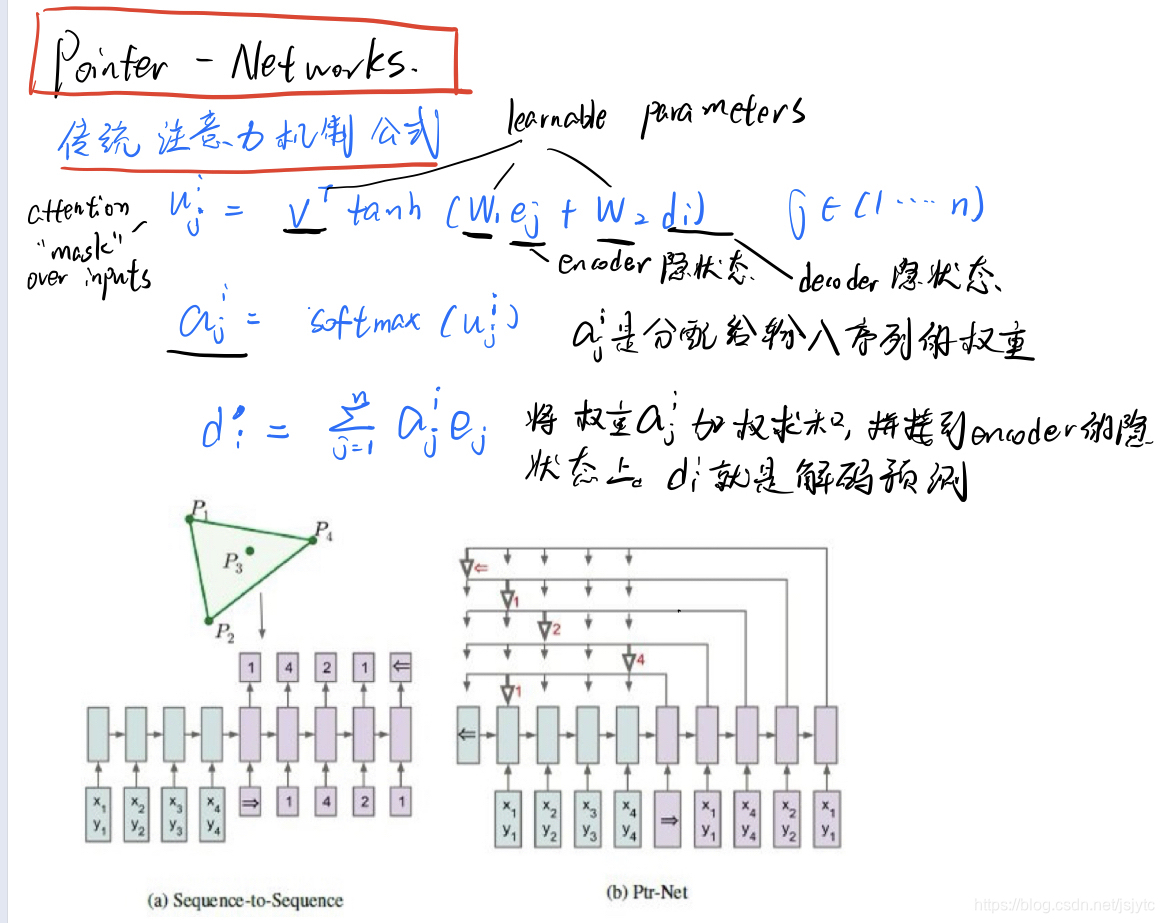 Pointer - Networks.
传统 注意力机制 公式
learnable parameters
attention
"mask"
over inputs
u_j^i = v^T tanh (W_1 e_j + W_2 d_i) j ∈ (1 ···· n)
encoder 隐状态
decoder 隐状态、
a_j^i = softmax (u_j^i)
a_j^i 是分配给输入序列的权重
d'_i = ∑_{j=1}^n a_j^i e_j
将 权重 a_j^i 加权求和, 拼接到 encoder 的隐
状态上。 d'_i 就是解码预测
P_1
P_4
P_3
P_2
1 4 2 1 ⇐
⇒ 1 4 2 1
x_1 x_2 x_3 x_4
y_1 y_2 y_3 y_4
(a) Sequence-to-Sequence
⇐
1
2
4
1
⇐
x_1 x_2 x_3 x_4 ⇒ x_1 x_4 x_2 x_1
y_1 y_2 y_3 y_4 y_1 y_4 y_2 y_1
(b) Ptr-Net
https://blog.csdn.net/jsjytc